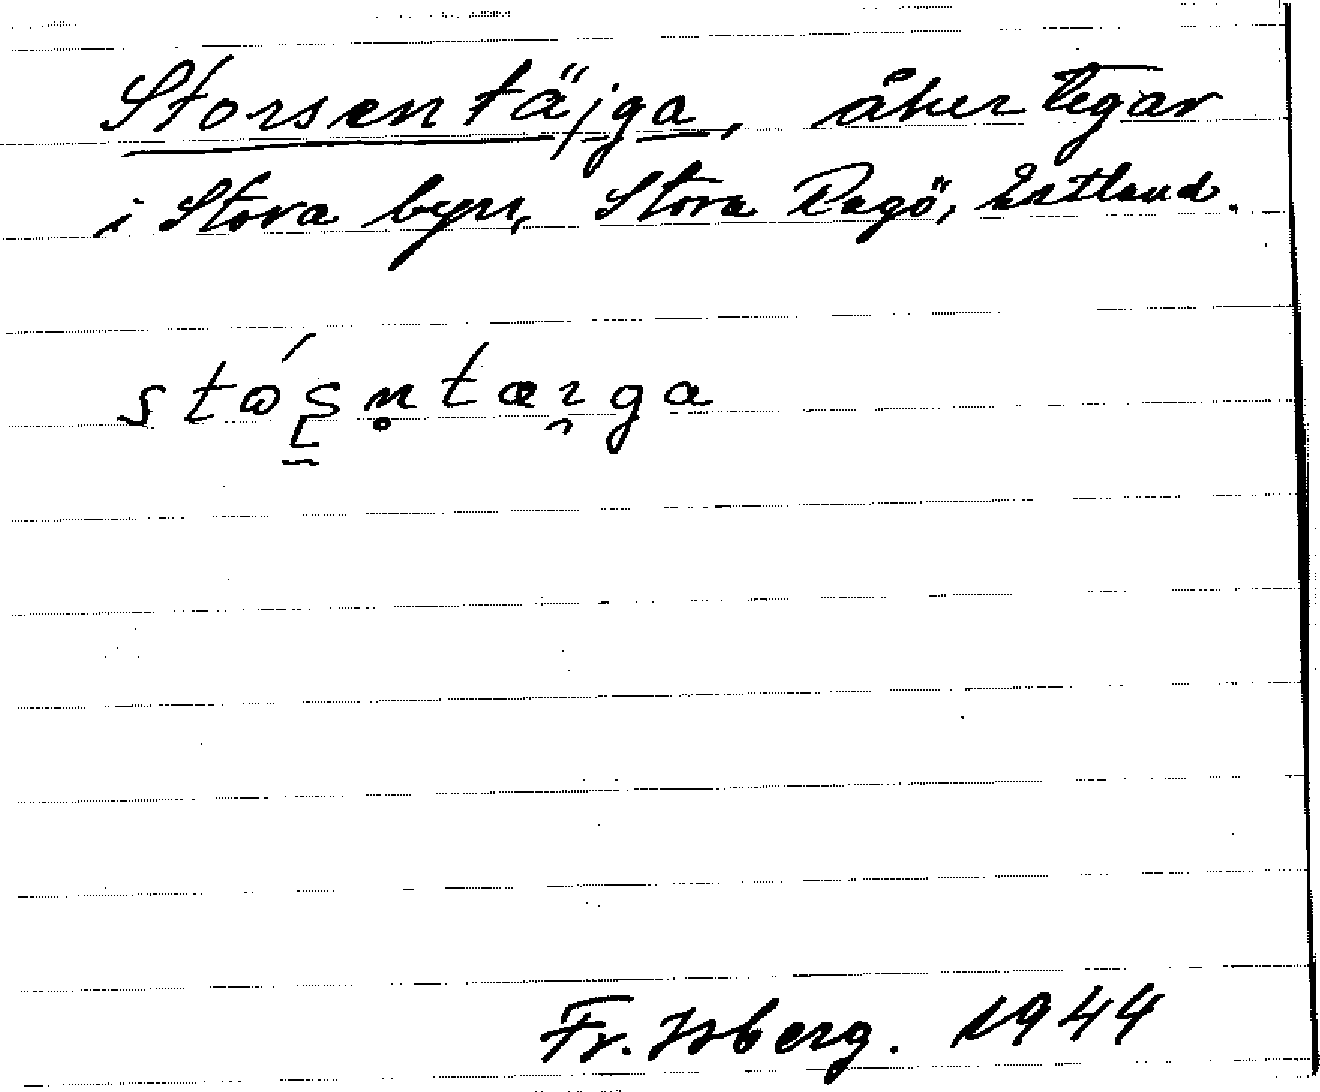 Storsentäjga, åker tegar
i Stora byn, Stora Rågö, Estland.
stós̱n̥tæɪ̯ga
Fr. Isberg. 1944